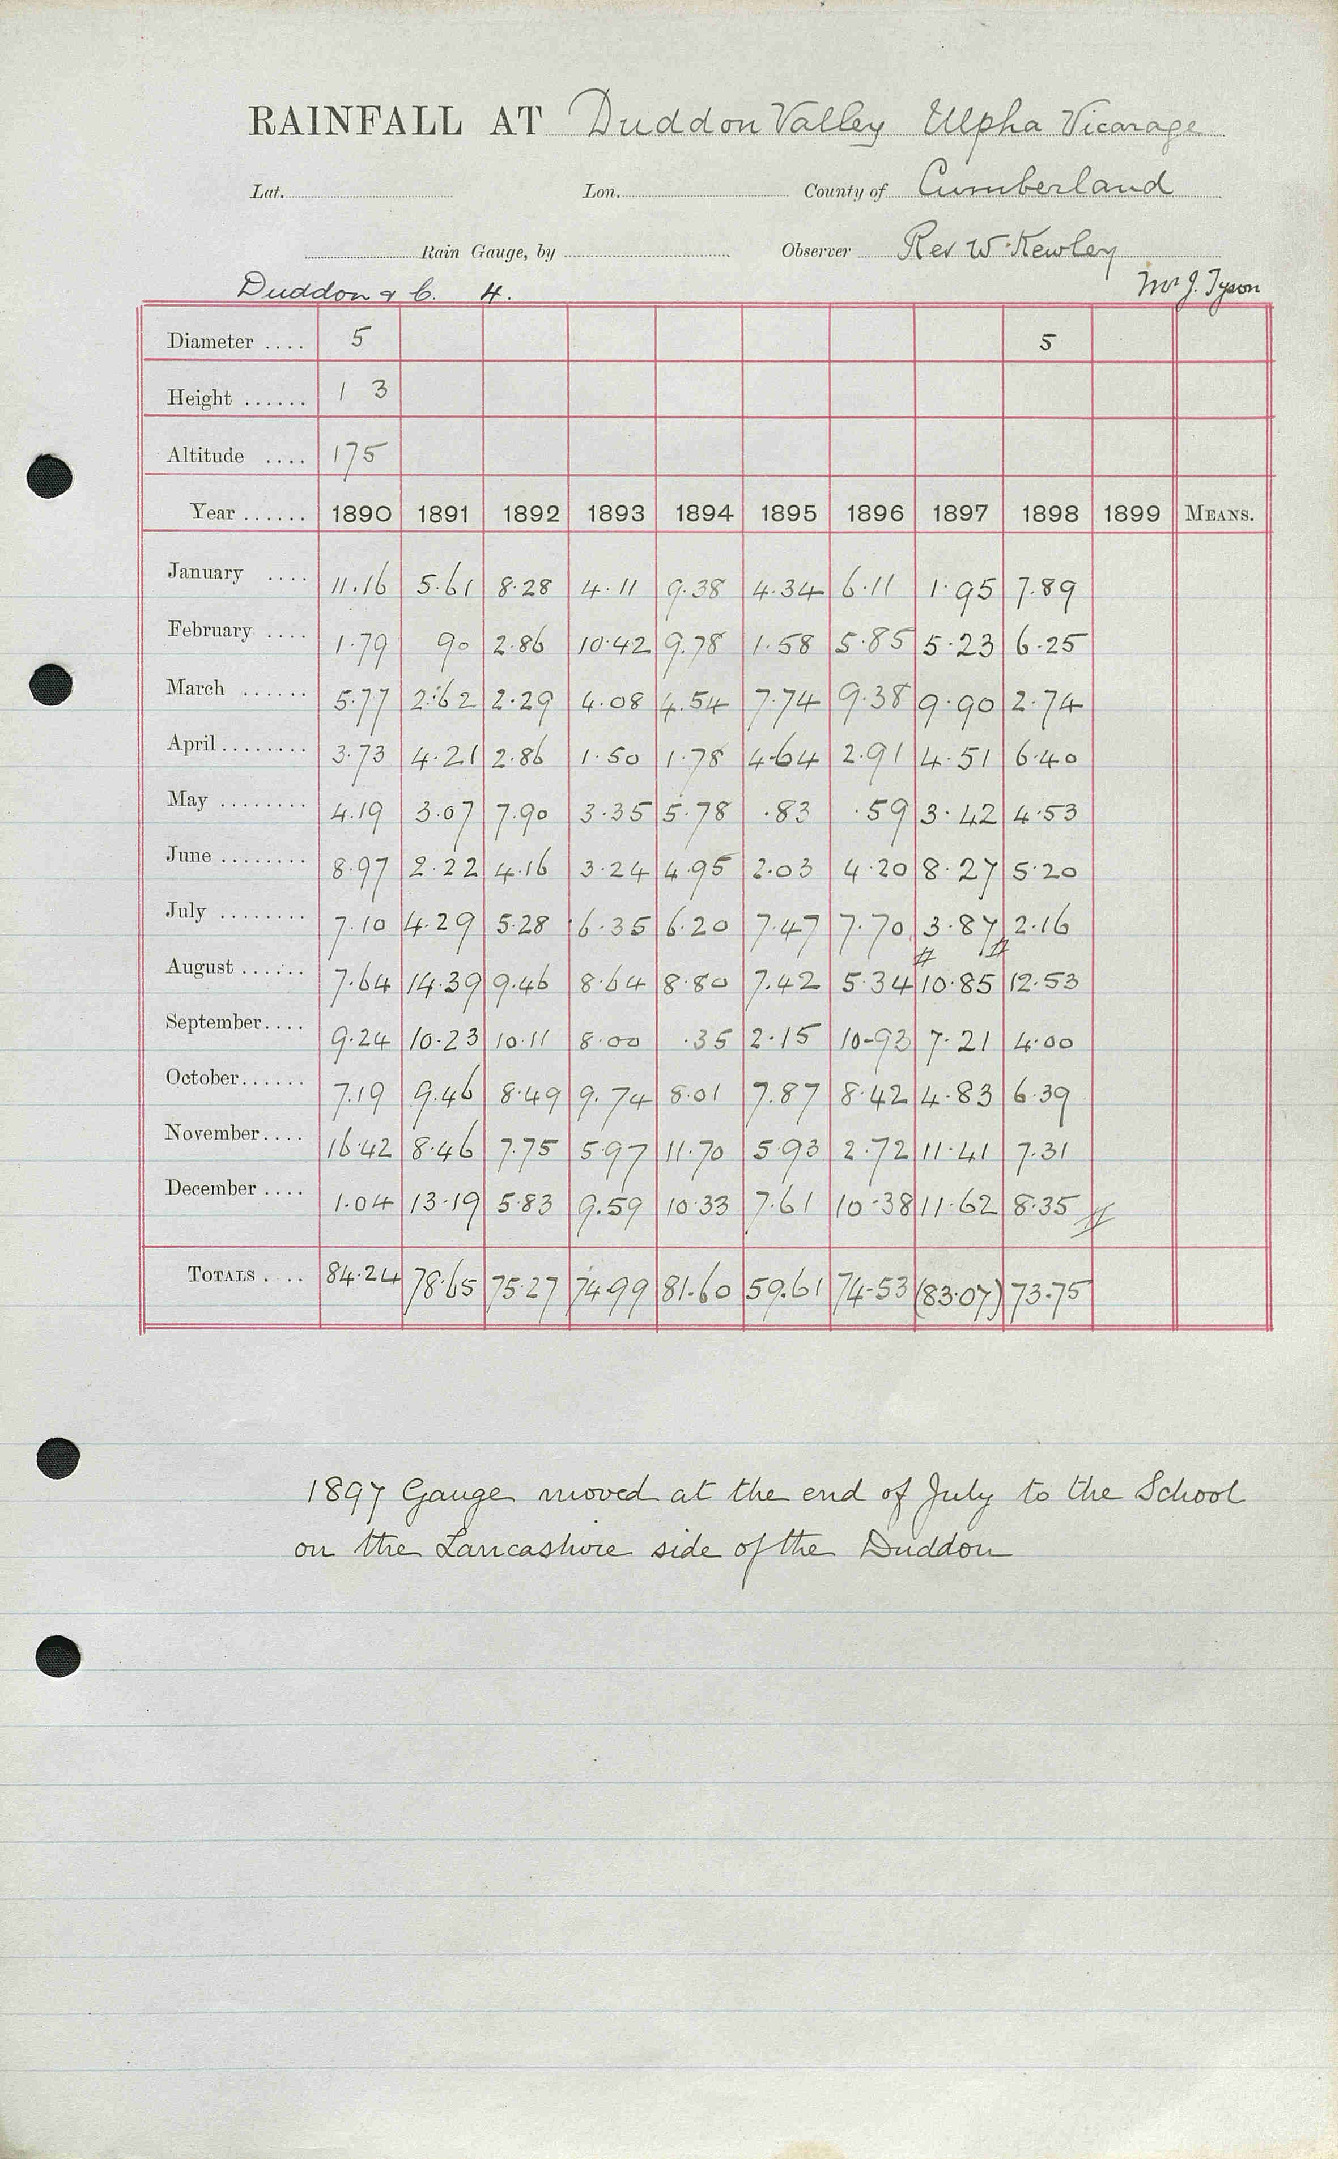 RAINFALL AT Duddon Valley Ulpha Vicarage
Lat. Lon. County of Cumberland
Rain Gauge, by Observer Rev W. Kewley
Duddon & C. 4. Mr J. Tyson
Diameter .... 5 5
Height ...... 1 3
Altitude .... 175
Year ...... 1890 1891 1892 1893 1894 1895 1896 1897 1898 1899 MEANS.
January .... 11.16 5.61 8.28 4.11 9.38 4.34 6.11 1.95 7.89
February .... 1.79 90 2.86 10.42 9.78 1.58 5.85 5.23 6.25
March ...... 5.77 2.62 2.29 4.08 4.54 7.74 9.38 9.90 2.74
April ........ 3.73 4.21 2.86 1.50 1.78 4.64 2.91 4.51 6.40
May ........ 4.19 3.07 7.90 3.35 5.78 .83 .59 3.42 4.53
June ........ 8.97 2.22 4.16 3.24 4.95 2.03 4.20 8.27 5.20
July ........ 7.10 4.29 5.28 6.35 6.20 7.47 7.70 3.87 2.16
August ...... 7.64 14.39 9.46 8.64 8.80 7.42 5.34 10.85 12.53
September .... 9.24 10.23 10.11 8.00 .35 2.15 10.93 7.21 4.00
October ...... 7.19 9.46 8.49 9.74 8.01 7.87 8.42 4.83 6.39
November .... 16.42 8.46 7.75 5.97 11.70 5.93 2.72 11.41 7.31
December .... 1.04 13.19 5.83 9.59 10.33 7.61 10.38 11.62 8.35
TOTALS .... 84.24 78.65 75.27 74.99 81.60 59.61 74.53 (83.07) 73.75
1897 Gauge moved at the end of July to the School
on the Lancashire side of the Duddon